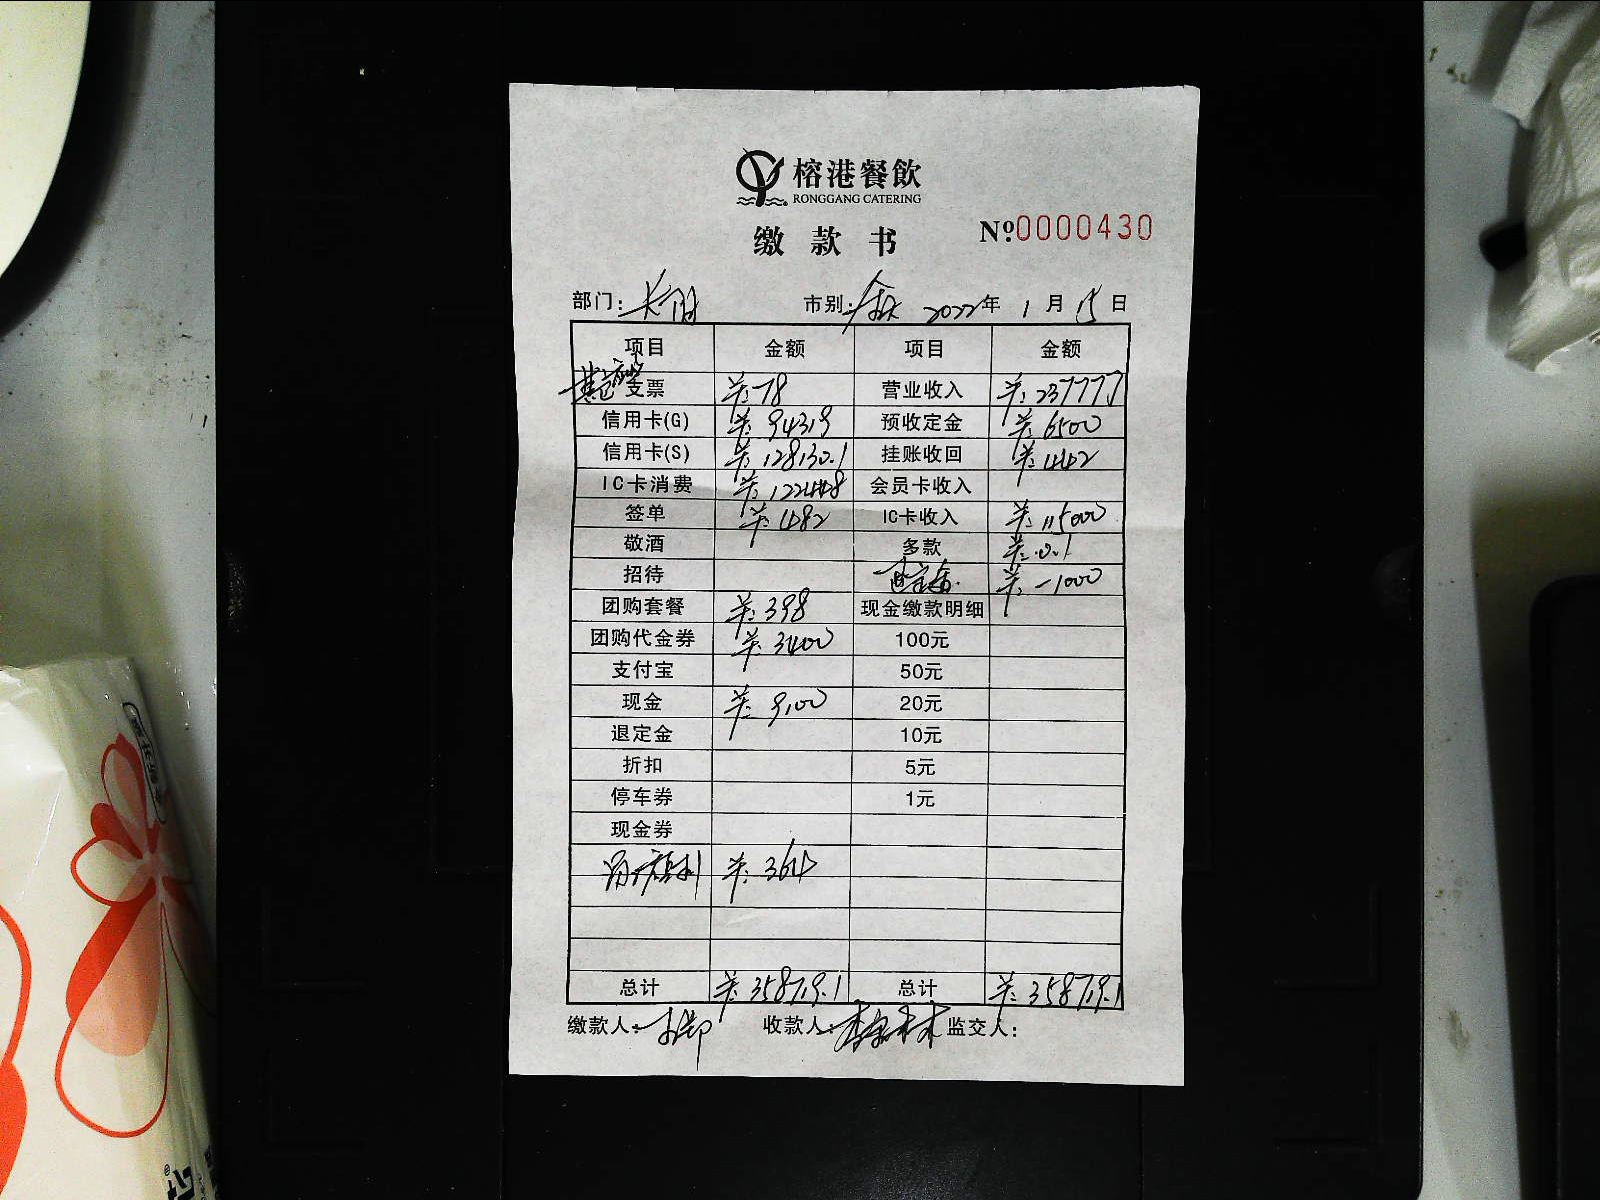 榕港餐飲
RONGGANG CATERING
缴款书
№:0000430
部门: 市别: 全天 2022年 1月 15日
项目 金额 项目 金额
支票 ¥:78 营业收入 ¥:237777
信用卡(G) ¥:94319 预收定金 ¥:6500
信用卡(S) ¥:128130.1 挂账收回 ¥:442
IC卡消费 ¥:122448 会员卡收入
签单 ¥:482 IC卡收入 ¥:115000
敬酒 多款 ¥:0.1
招待 ¥:-1000
团购套餐 ¥:398 现金缴款明细
团购代金券 ¥:3400 100元
支付宝 50元
现金 ¥:9100 20元
退定金 10元
折扣 5元
停车券 1元
现金券
¥:364
总计 ¥:358719.1 总计 ¥:358719.1
缴款人: 收款人: 监交人: